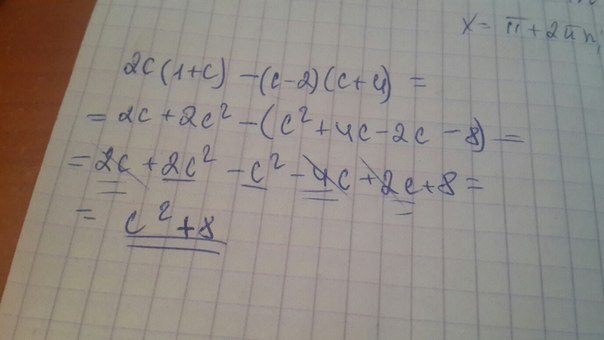 x = π + 2πn,
2c(1+c) – (c-2)(c+4) =
= 2c + 2c² – (c² + 4c – 2c – 8) =
= 2c + 2c² – c² – 4c + 2c + 8 =
= c² + 8